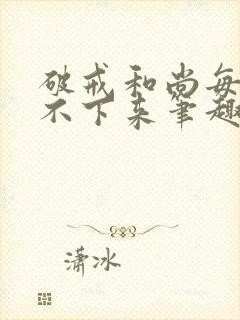 破戒和尚每
不下来笔趣
潇冰